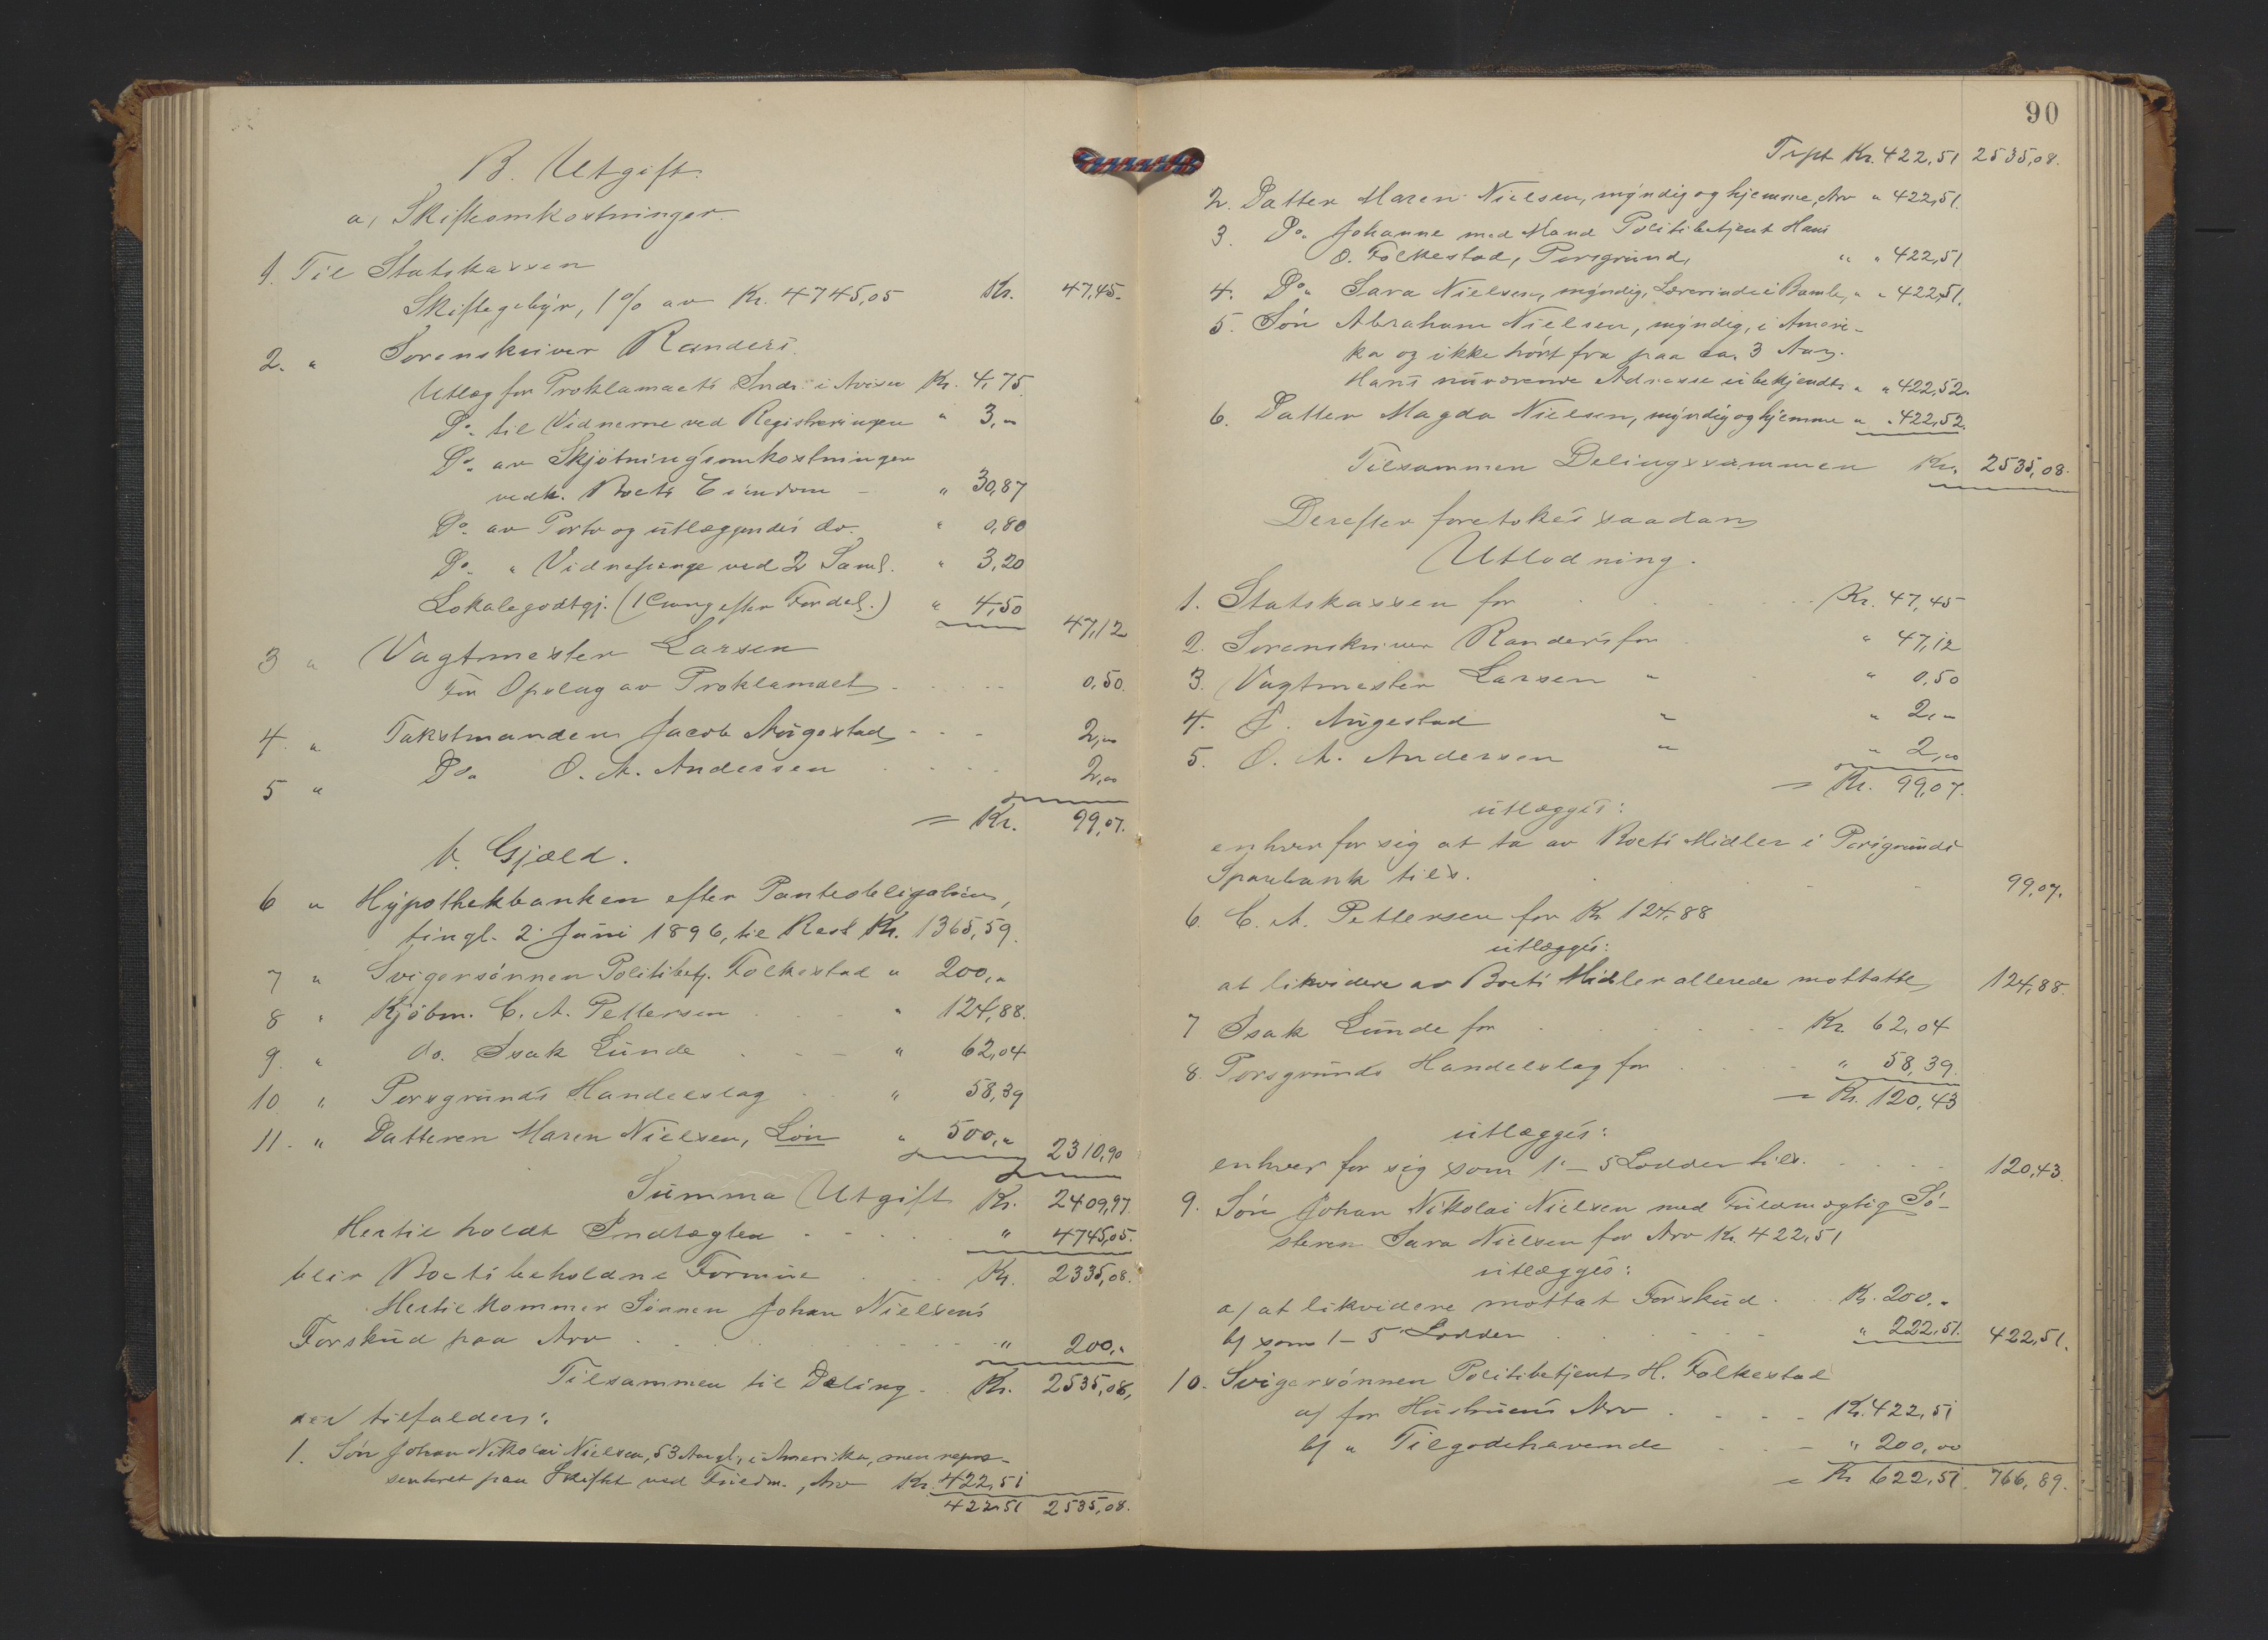 B. Utgift.
a, Skifteomkostninger.
1. Til Statskassen
Skiftegebyr, 1% av Kr. 4745,05 Kr. 47,45.
2. " Sorenskriver Randers.
Utlæg for Proklamaets Indr. i Avisen Kr. 4,75
Do. til Vidnerne ved Registreringen " 3,"
Do. av Skjøtningsomkostninger
vedk. Boets Eiendom – " 30,87
Do. av Porto og utlæggendes do. " 0,80
Do. " Vidnepenge ved 2 Saml. " 3,20
Lokalegodtgj. (1 Gang efter Fordel.) " 4,50 47,12
3 " Vagtmester Larsen
for Opslag av Proklamaet 0,50.
4. " Takstmanden Jacob Augestad 2,"
5 " Do. O. A. Andersen 2,"
= Kr. 99,07.
b. Gjæld.
6 " Hypothekbanken efter Panteobligation,
tingl. 2. Juni 1896, til Rest Kr. 1365,59.
7 " Svigersønnen Politibetj. Folkestad " 200,"
8 " Kjøbm. C. A. Pettersen " 124,88.
9. " do. Isak Lunde " 62,04
10 " Porsgrunds Handelslag " 58,39
11. " Datteren Maren Nielsen, Løn " 500," 2310,90
Summa Utgift Kr. 2409,97.
Hertil holdt Indtægten " 4745,05.
blir Boets beholdne Formue Kr. 2335,08.
Hertil kommer Sønnen Johan Nielsens
Forskud paa Arv " 200,"
Tilsammen til Deling Kr. 2535,08,
der tilfalder:
1. Søn Johan Nikolai Nielsen, 53 Aar gl., i Amerika, men repræ-
senteret paa Skiftet ved Fuldm., Arv Kr. 422,51
422,51 2535,08.
90
Trpt Kr. 422,51 2535,08.
2. Datter Maren Nielsen, myndig og hjemme, Arv " 422,51.
3. Do. Johanne med Mand Politibetjent Hans
O. Folkestad, Porsgrund, " " 422,51
4. Do. Sara Nielsen, myndig, Lærerinde i Bamle, " " 422,51.
5. Søn Abraham Nielsen, myndig, i Ameri-
ka og ikke hørt fra paa ca. 3 Aar.
Hans nuværende Adresse ubekjendt. " " 422,52.
6. Datter Magda Nielsen, myndig og hjemme " " 422,52.
Tilsammen Delingssummen Kr. 2535,08.
Derefter foretokes saadan
Utlodning.
1. Statskassen for Kr. 47,45
2. Sorenskriver Randers for " 47,12
3. Vagtmester Larsen " " 0,50
4. J. Augestad " " 2,"
5. O. A. Andersen " " 2,"
= Kr. 99,07.
utlægges:
enhver for sig at ta av Boets Midler i Porsgrunds
Sparebank tils. 99,07.
6. C. A. Pettersen for Kr 124,88
utlægges:
at likvidere av Boets Midler allerede mottatte 124,88.
7 Isak Lunde for Kr. 62,04
8. Porsgrunds Handelslag for " 58,39.
= Kr. 120,43
utlægges:
enhver for sig som 1 – 5 Lodder tils. 120,43.
9. Søn Johan Nikolai Nielsen med Fuldmægtig Sø-
steren Sara Nielsen for Arv Kr. 422,51
utlægges:
a/ at likvidere mottat Forskud Kr. 200,"
b/ som 1 – 5 Lodder " 222,51. 422,51.
10. Svigersønnen Politibetjent H. Folkestad
a/ for Hustruens Arv Kr. 422,51
b/ " Tilgodehavende " 200,00
= Kr 622,51. 766,89.